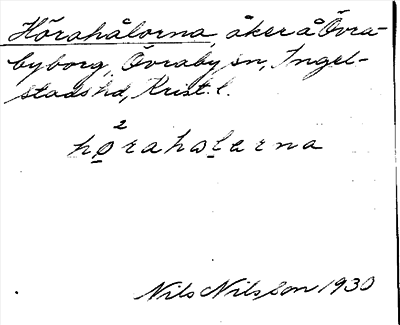 Hörahålorna, åker å Övra-
byborg, Övraby sn, Ingel-
stads hd, Krist. l.
2
hørahalarna
Nils Nilsson 1930